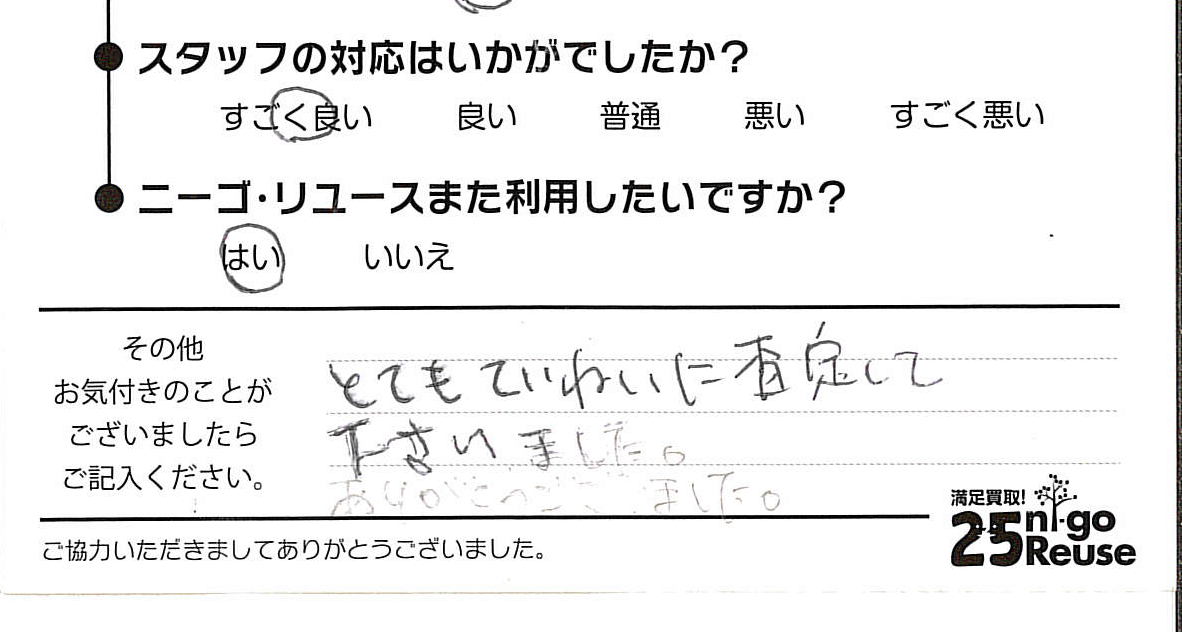 スタッフの対応はいかがでしたか？
すごく良い 良い 普通 悪い すごく悪い
ニーゴ・リユースまた利用したいですか？
はい いいえ
その他
お気付きのことが
ございましたら
ご記入ください。
とてもていねいに査定して
下さいました。
ありがとうございました。
満足買取!
25 ni-go
Reuse
ご協力いただきましてありがとうございました。